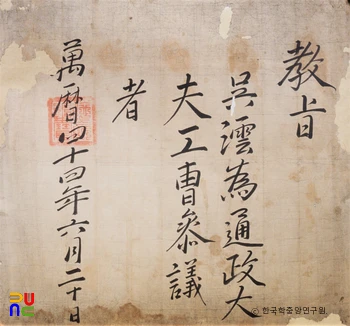 教旨
吳澐為通政大
夫工曹參議
者
萬曆四十四年六月二十日
© 한국학중앙연구원